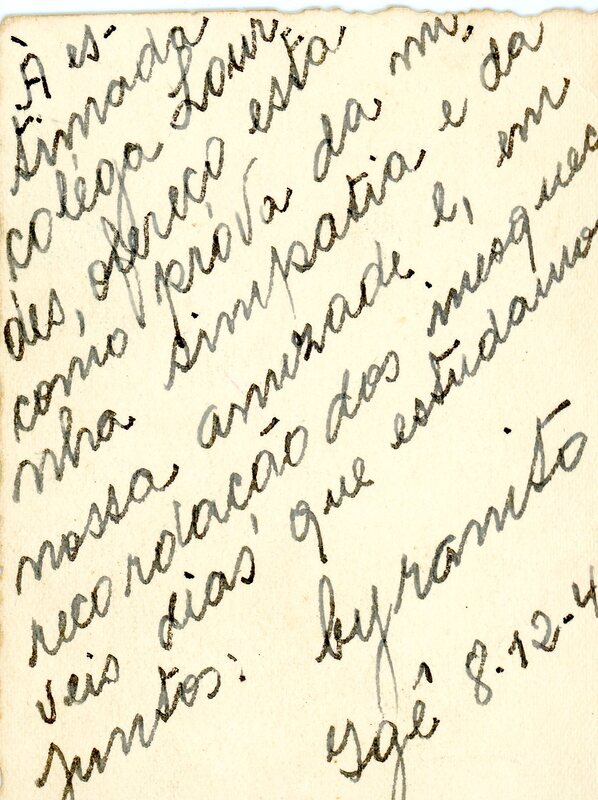 À es-
timada
coléga Lour-
des, ofereço esta
como próva da mi-
nha simpatia e da
nossa amizade e, em
recordação dos inesquec
veis dias que estudamo
juntos.
Byranito
Igê 8-12-4